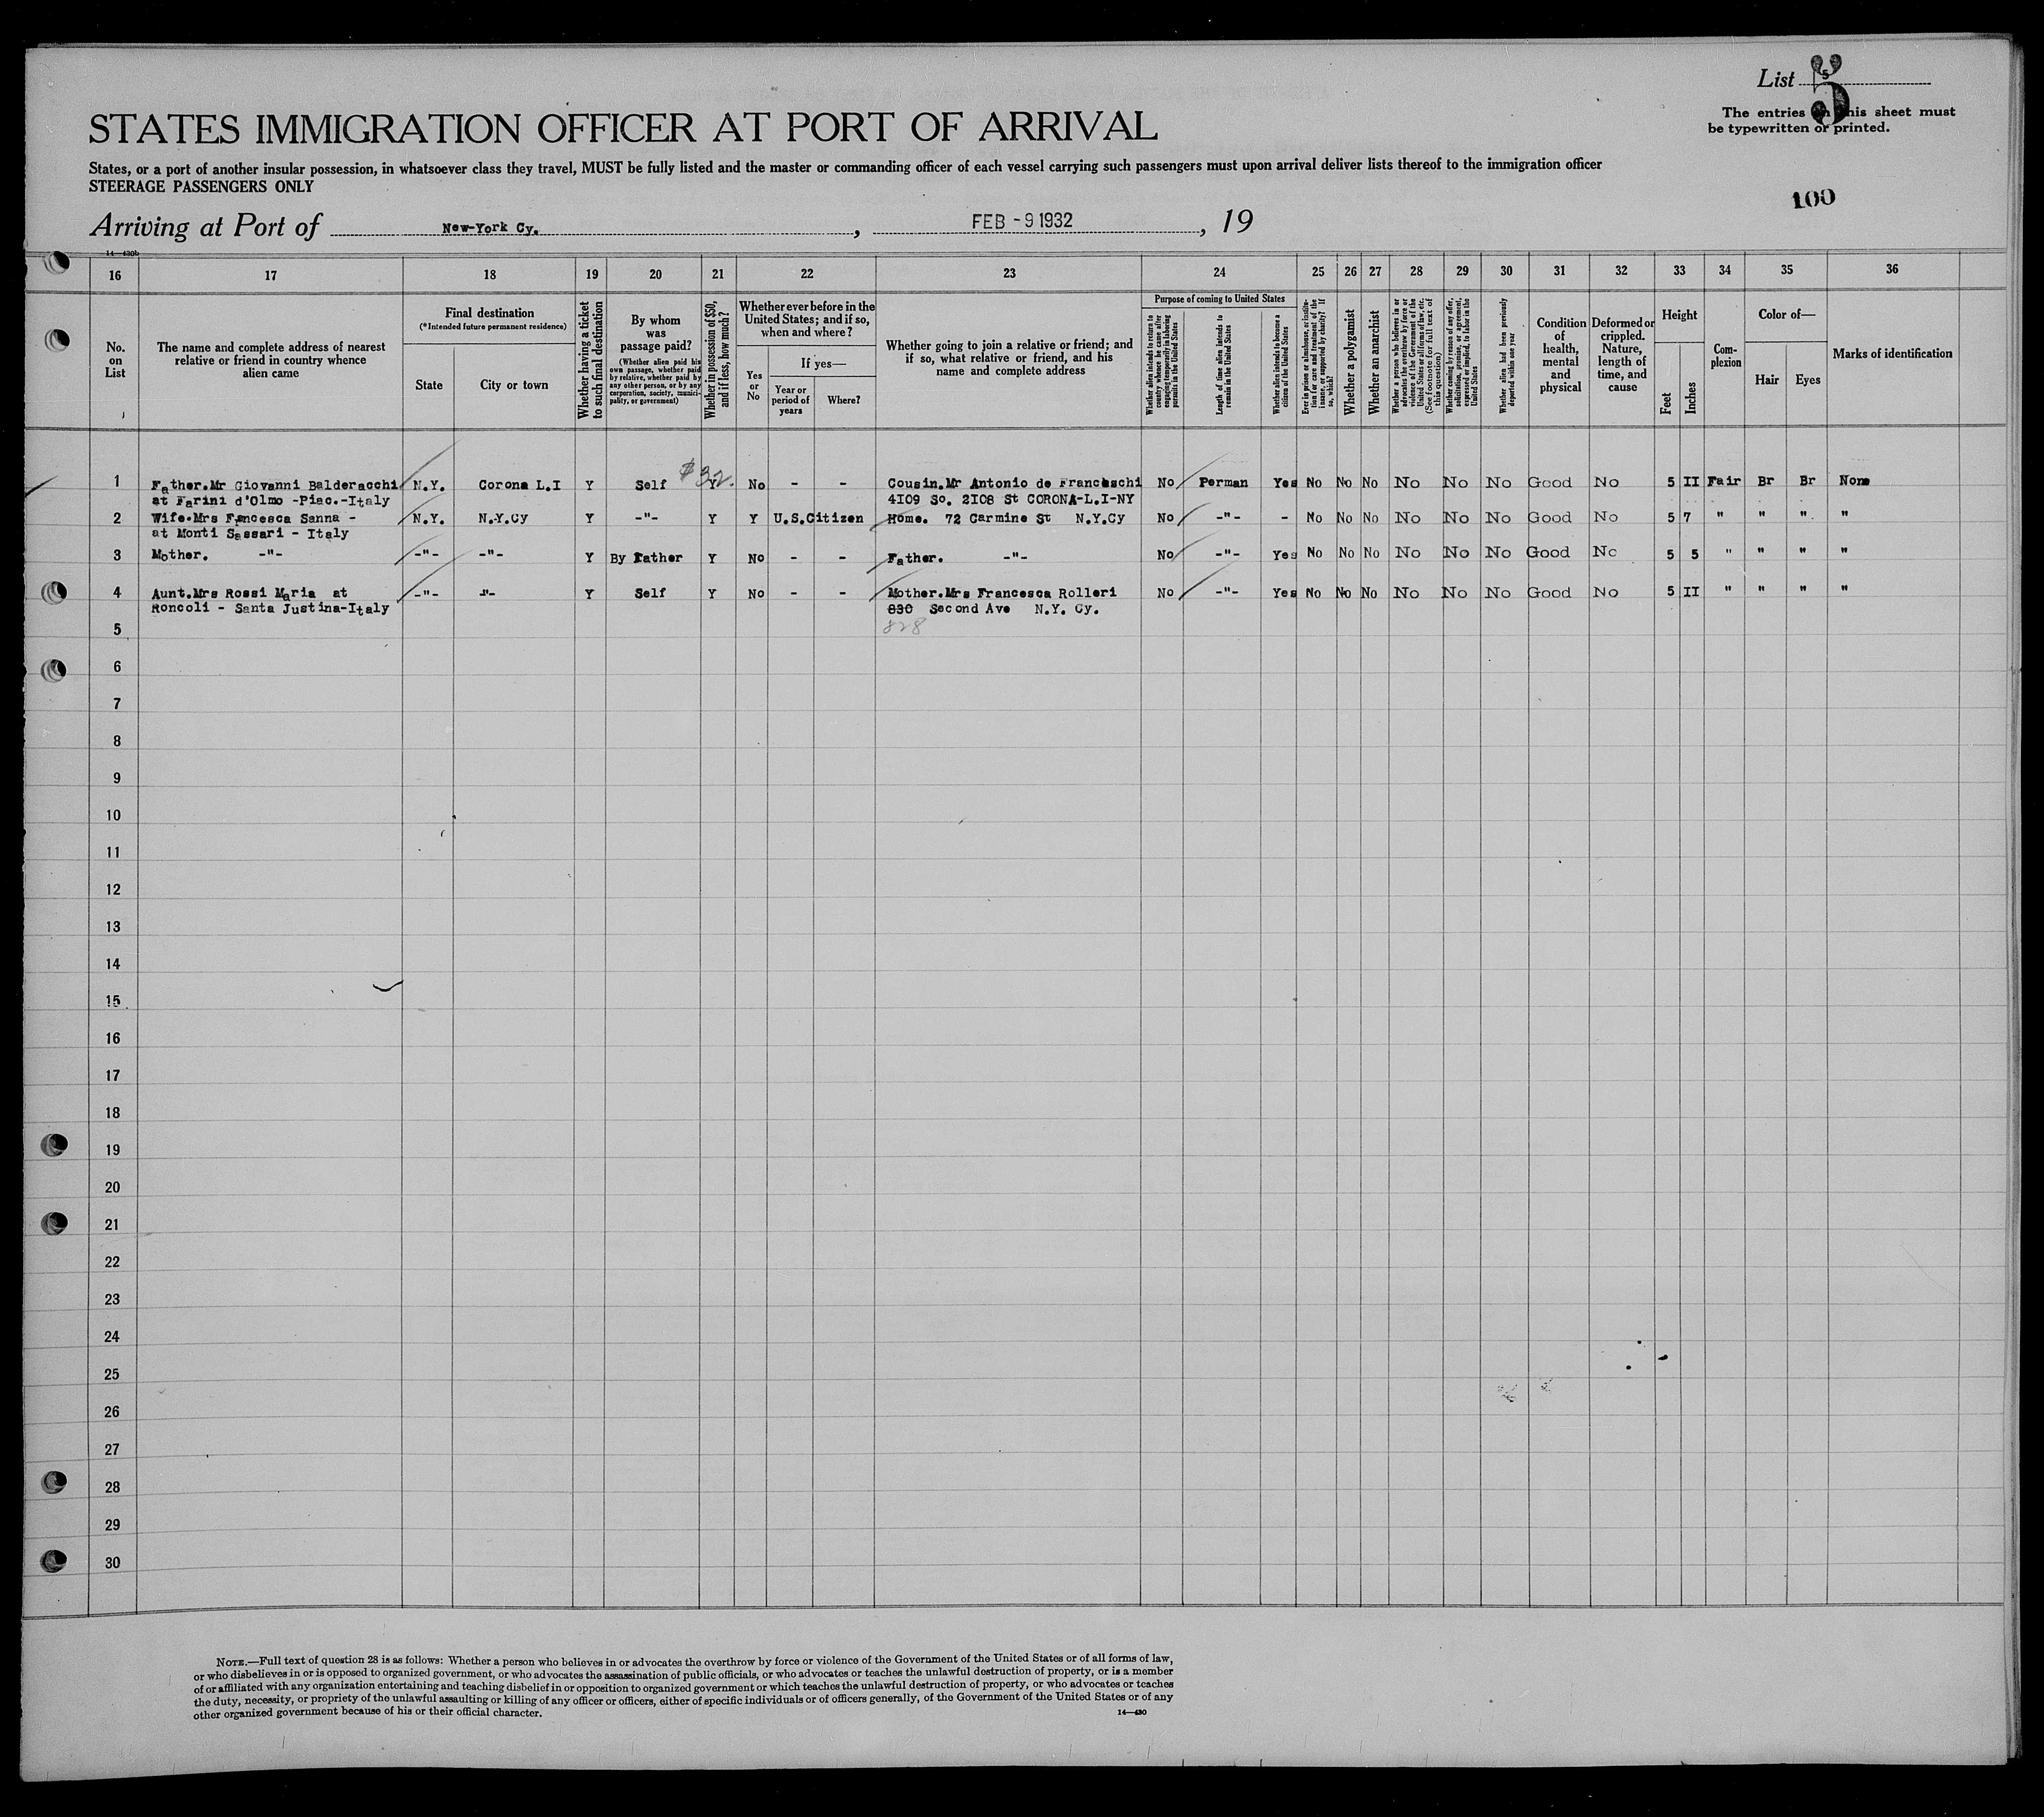 List 5
5
The entries on this sheet must
be typewritten or printed.
STATES IMMIGRATION OFFICER AT PORT OF ARRIVAL
States, or a port of another insular possession, in whatsoever class they travel, MUST be fully listed and the master or commanding officer of each vessel carrying such passengers must upon arrival deliver lists thereof to the immigration officer
STEERAGE PASSENGERS ONLY
100
Arriving at Port of New-York Cy., FEB -9 1932, 19
14—430b
16 17 18 19 20 21 22 23 24 25 26 27 28 29 30 31 32 33 34 35 36
No.
on
List
The name and complete address of nearest
relative or friend in country whence
alien came
Final destination
(*Intended future permanent residence)
State
City or town
Whether having a ticket
to such final destination
By whom
was
passage paid?
(Whether alien paid his
own passage, whether paid
by relative, whether paid by
any other person, or by any
corporation, society, munici-
pality, or government)
Whether in possession of $50,
and if less, how much?
Whether ever before in the
United States; and if so,
when and where?
Yes
or
No
If yes—
Year or
period of
years
Where?
Whether going to join a relative or friend; and
if so, what relative or friend, and his
name and complete address
Purpose of coming to United States
Whether alien intends to return to
country whence he came after
engaging temporarily in laboring
pursuits in the United States
Length of time alien intends to
remain in the United States
Whether alien intends to become a
citizen of the United States
Ever in prison or almshouse, or institu-
tion for care and treatment of the
insane, or supported by charity? If
so, which?
Whether a polygamist
Whether an anarchist
Whether a person who believes in or
advocates the overthrow by force or
violence of the Government of the
United States or all forms of law, etc.
(See footnote for full text of
this question)
Whether coming by reason of any offer,
solicitation, promise, or agreement,
expressed or implied, to labor in the
United States
Whether alien had been previously
deported within one year
Condition
of
health,
mental
and
physical
Deformed or
crippled.
Nature,
length of
time, and
cause
Height
Feet
Inches
Com-
plexion
Color of—
Hair
Eyes
Marks of identification
1 Father.Mr Giovanni Balderacchi N.Y. Corona L.I Y Self $32. Y No - - Cousin.Mr Antonio de Franceschi No Perman Yes No No No No No No Good No 5 II Fair Br Br None
at Farini d'Olmo -Piac.-Italy 4I09 So. 2I08 St CORONA-L.I-NY
2 Wife.Mrs Francesca Sanna - N.Y. N.Y.Cy Y -"- Y Y U.S.Citizen Home. 72 Carmine St N.Y.Cy No -"- - No No No No No No Good No 5 7 " " " "
at Monti Sassari - Italy
3 Mother. -"- -"- -"- Y By Father Y No - - Father. -"- No -"- Yes No No No No No No Good No 5 5 " " " "
4 Aunt.Mrs Rossi Maria at -"- -"- Y Self Y No - - Mother.Mrs Francesca Rolleri No -"- Yes No No No No No No Good No 5 II " " " "
Roncoli - Santa Justina-Italy 830 Second Ave N.Y. Cy.
5 828
6
7
8
9
10
11
12
13
14
15
16
17
18
19
20
21
22
23
24
25
26
27
28
29
30
NOTE.—Full text of question 28 is as follows: Whether a person who believes in or advocates the overthrow by force or violence of the Government of the United States or of all forms of law,
or who disbelieves in or is opposed to organized government, or who advocates the assassination of public officials, or who advocates or teaches the unlawful destruction of property, or is a member
of or affiliated with any organization entertaining and teaching disbelief in or opposition to organized government or which teaches the unlawful destruction of property, or who advocates or teaches
the duty, necessity, or propriety of the unlawful assaulting or killing of any officer or officers, either of specific individuals or of officers generally, of the Government of the United States or of any
other organized government because of his or their official character.
14—430